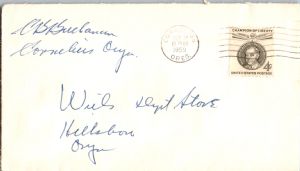 CB Buchanan
Cornelius Oregon.
1959
OREG.
CHAMPION OF LIBERTY
4¢
UNITED STATES POSTAGE
Weils Dept Store
Hillsboro
Oregon